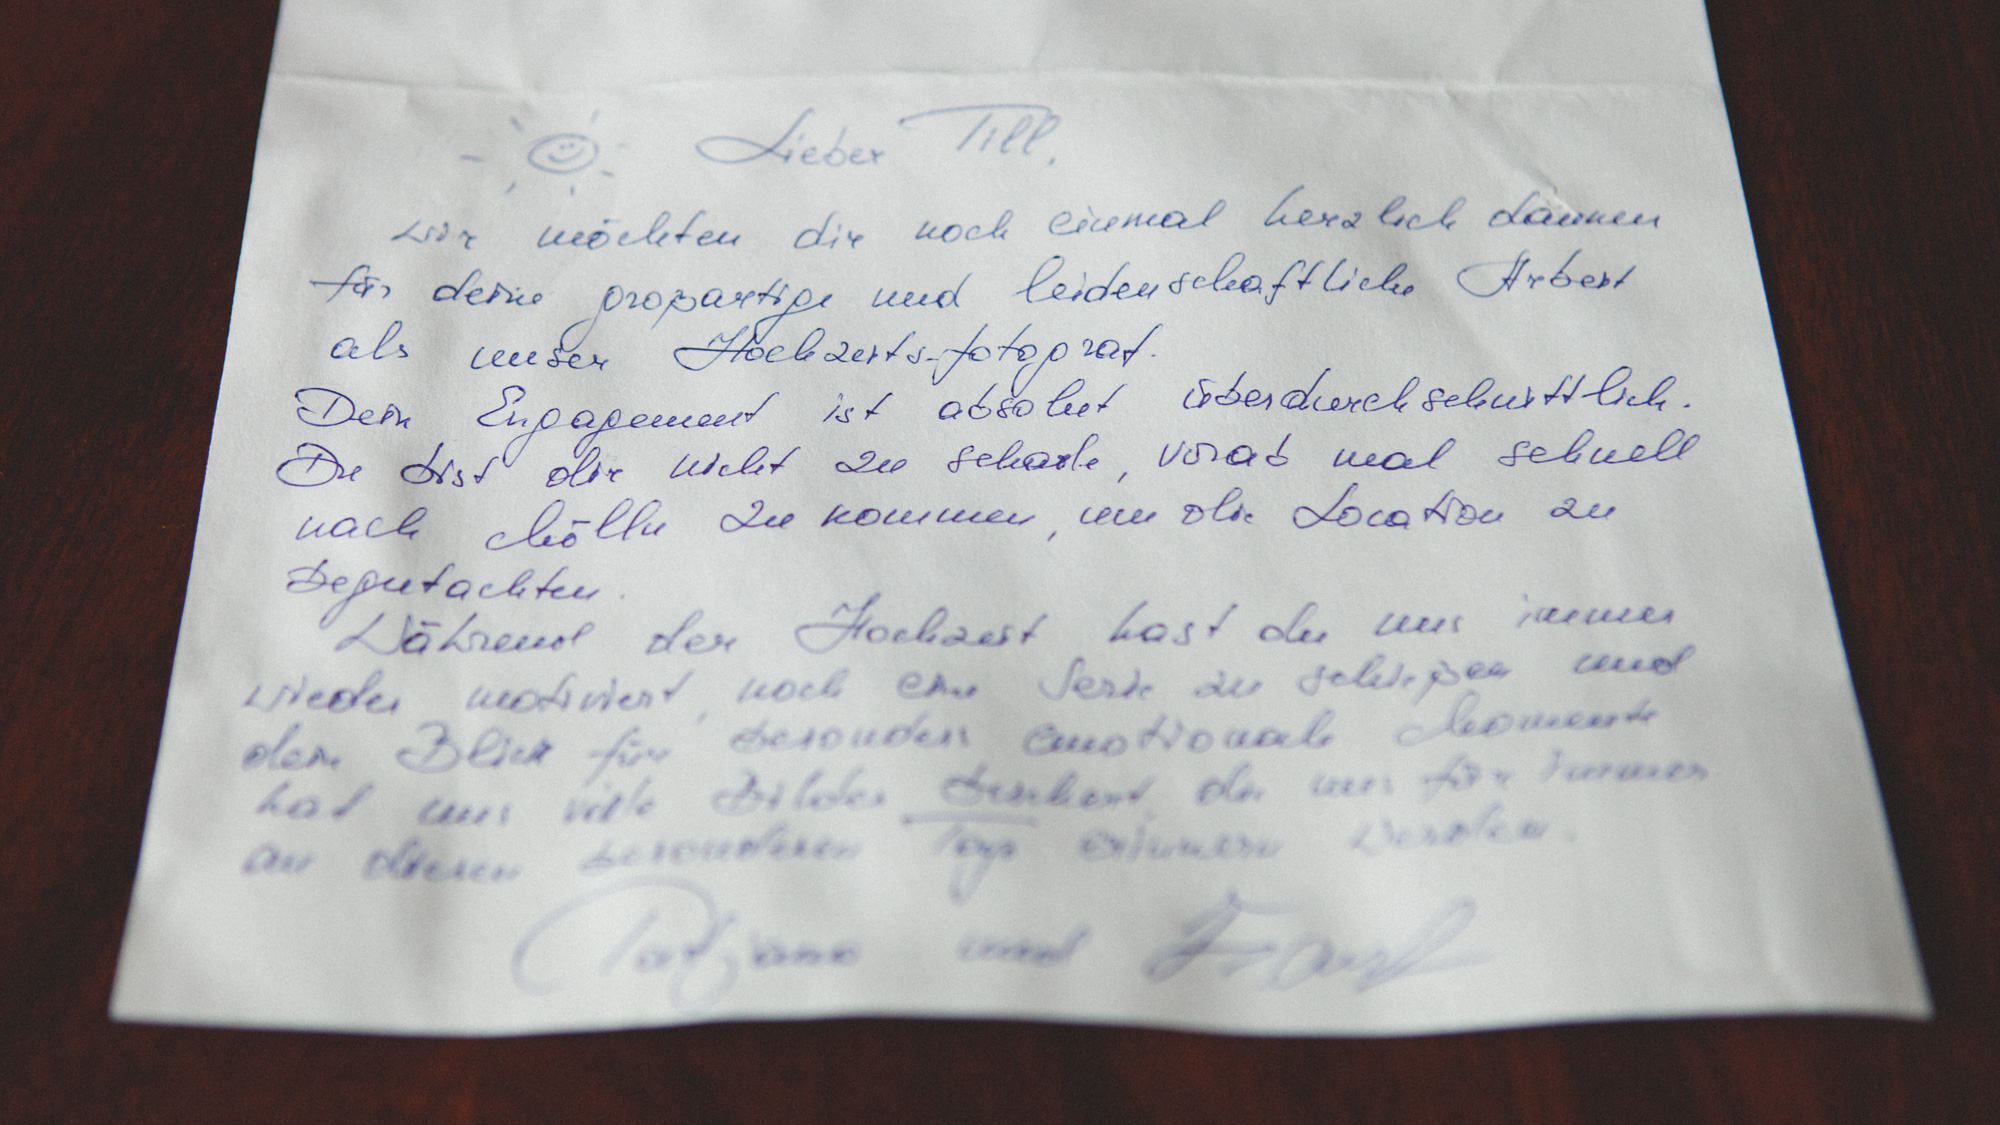 Lieber Till,
wir möchten dir noch einmal herzlich danken
für deine großartige und leidenschaftliche Arbeit
als unser Hochzeits-fotograf.
Dein Engagement ist absolut überdurchschnittlich.
Du bist dir nicht zu schade, vorab mal schnell
nach Mölln zu kommen, um die Location zu
begutachten.
Während der Hochzeit hast du uns immer
wieder motiviert, noch eine Serie zu schießen und
dein Blick für besonders emotionale Momente
hat uns viele Bilder beschert, die uns für immer
an diesen besonderen Tag erinnern werden.
Tatjana und